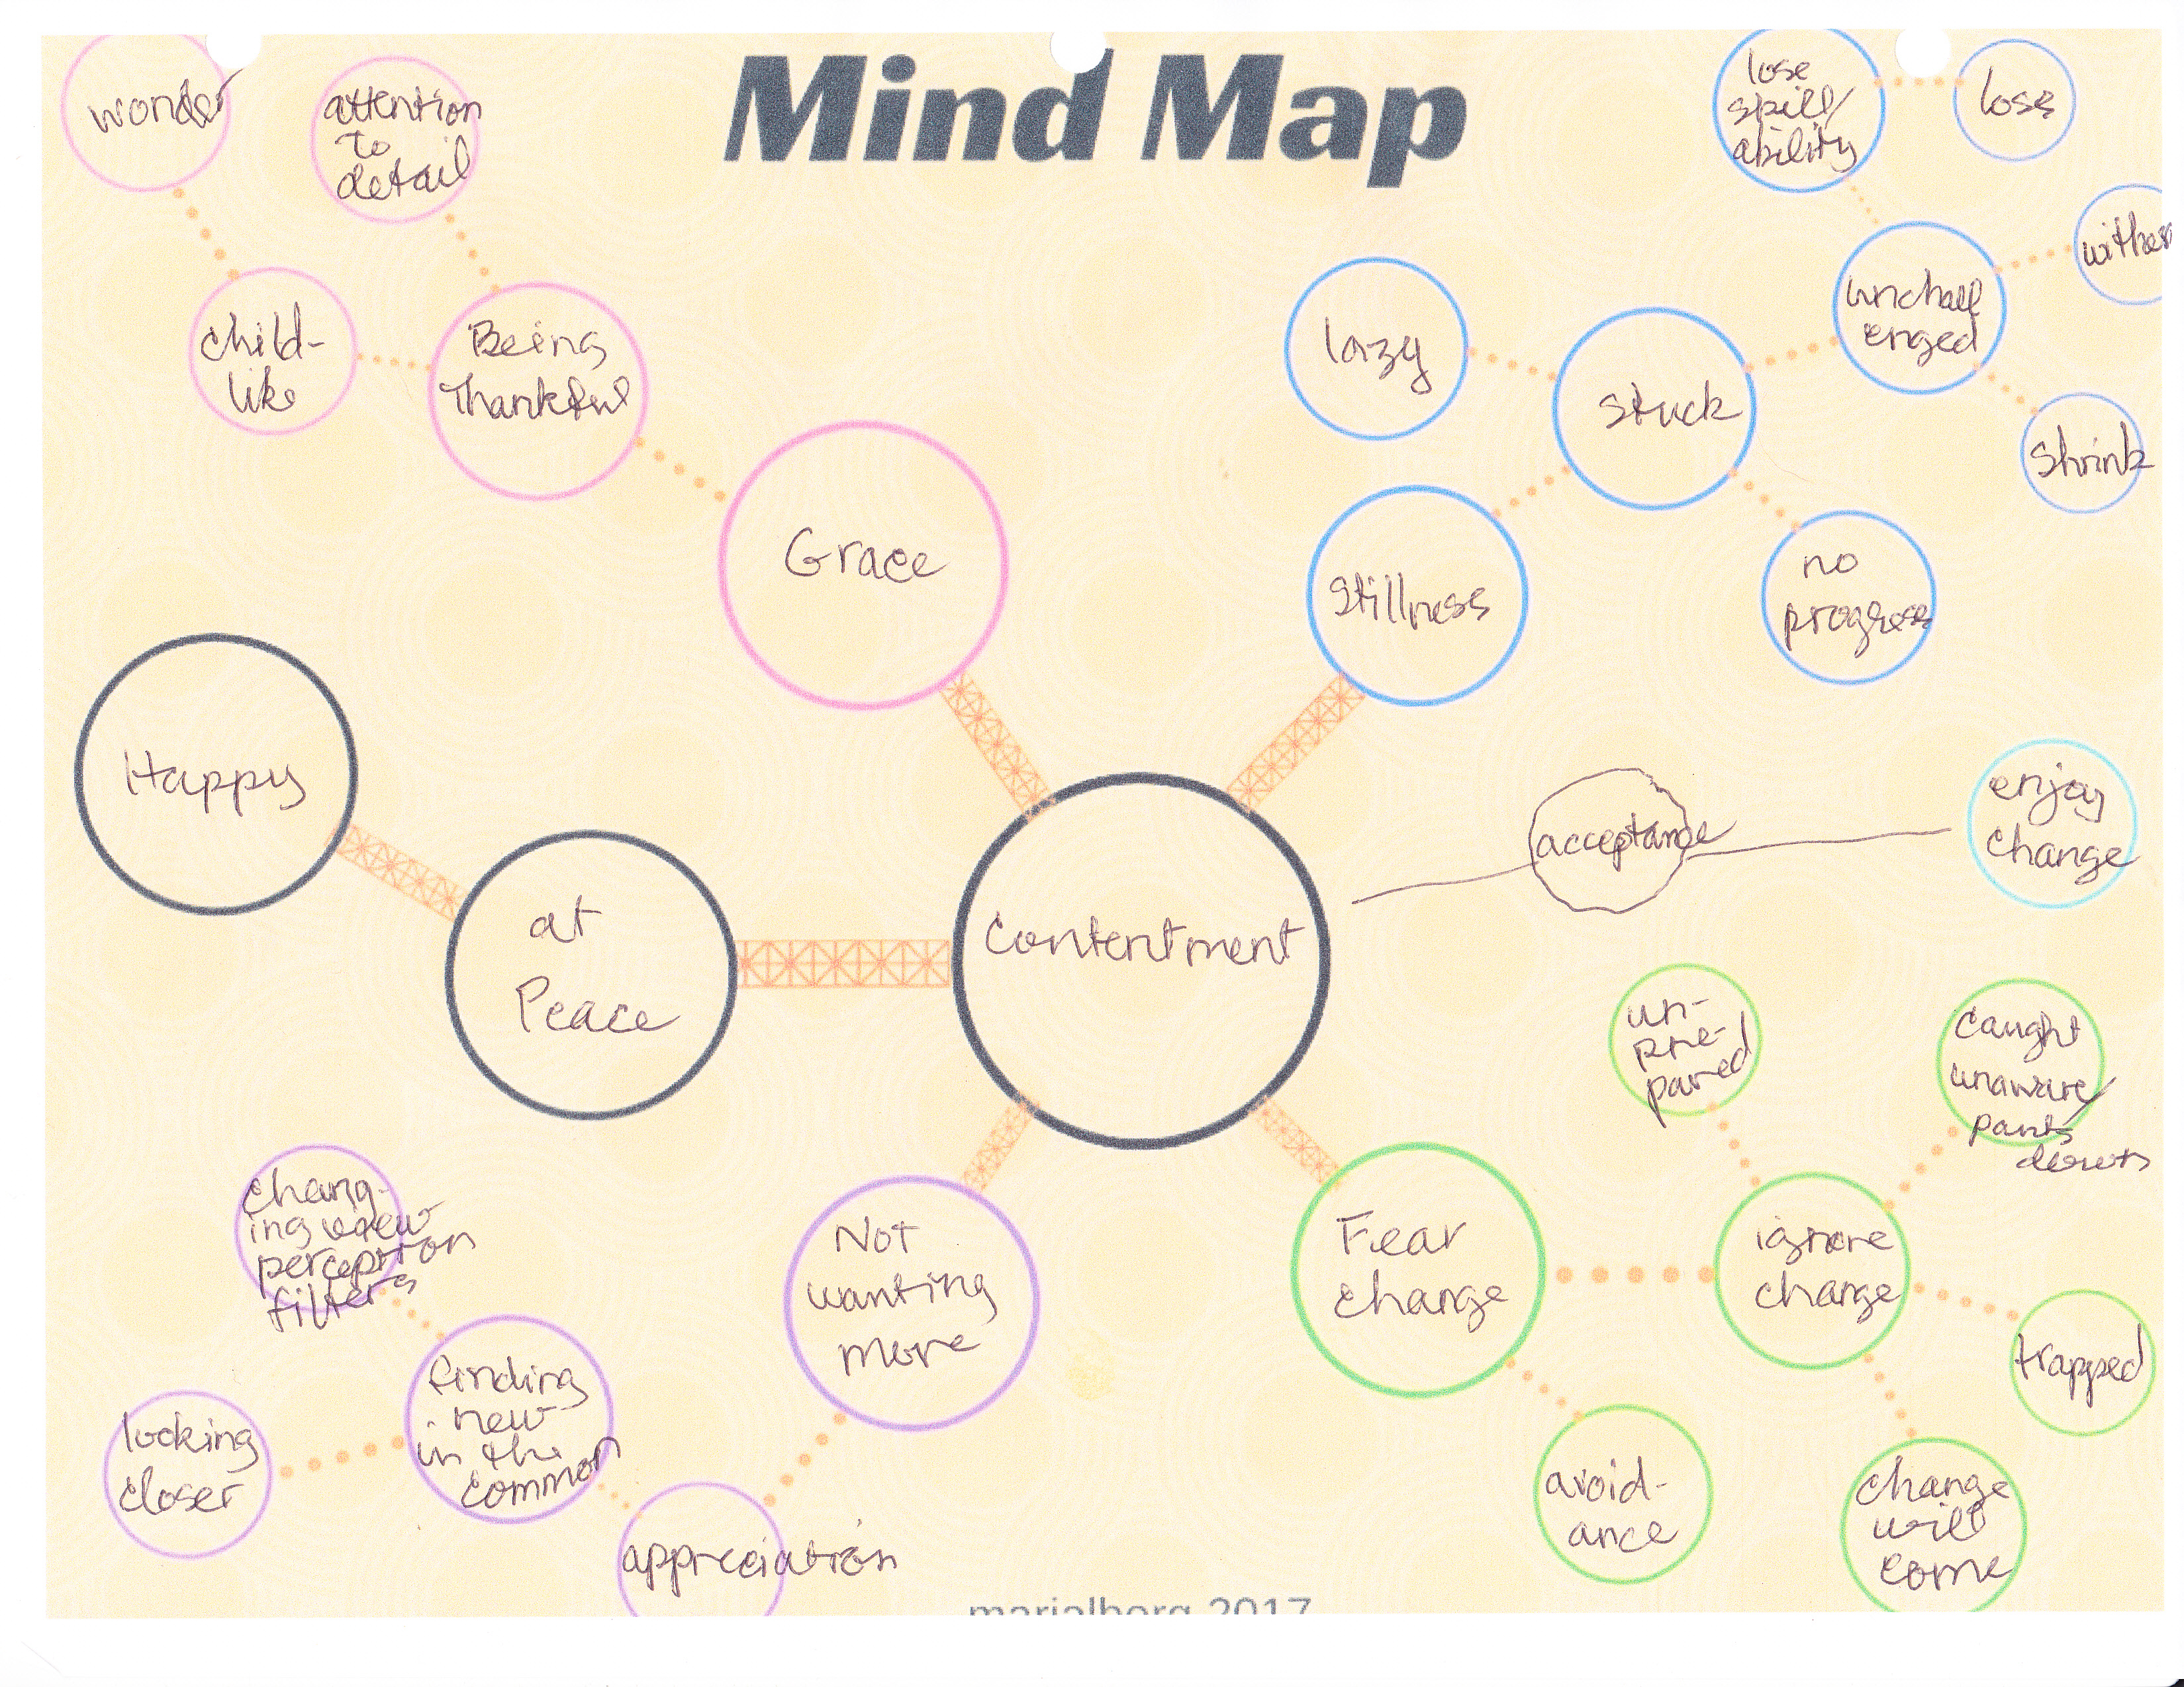 Mind Map
wonder
attention
to
detail
child-
like
Being
Thankful
Grace
lose
skill/
ability
loss
wither
unchall
enged
shrink
lazy
stuck
no
progress
Stillness
Happy
at
Peace
Contentment
acceptance
enjoy
change
un-
pre-
pared
caught
unaware/
pants
down
Fear
change
ignore
change
trapped
avoid-
ance
change
will
come
Not
wanting
more
appreciation
finding
new
in the
common
chang-
ing view
perception
filters
looking
closer